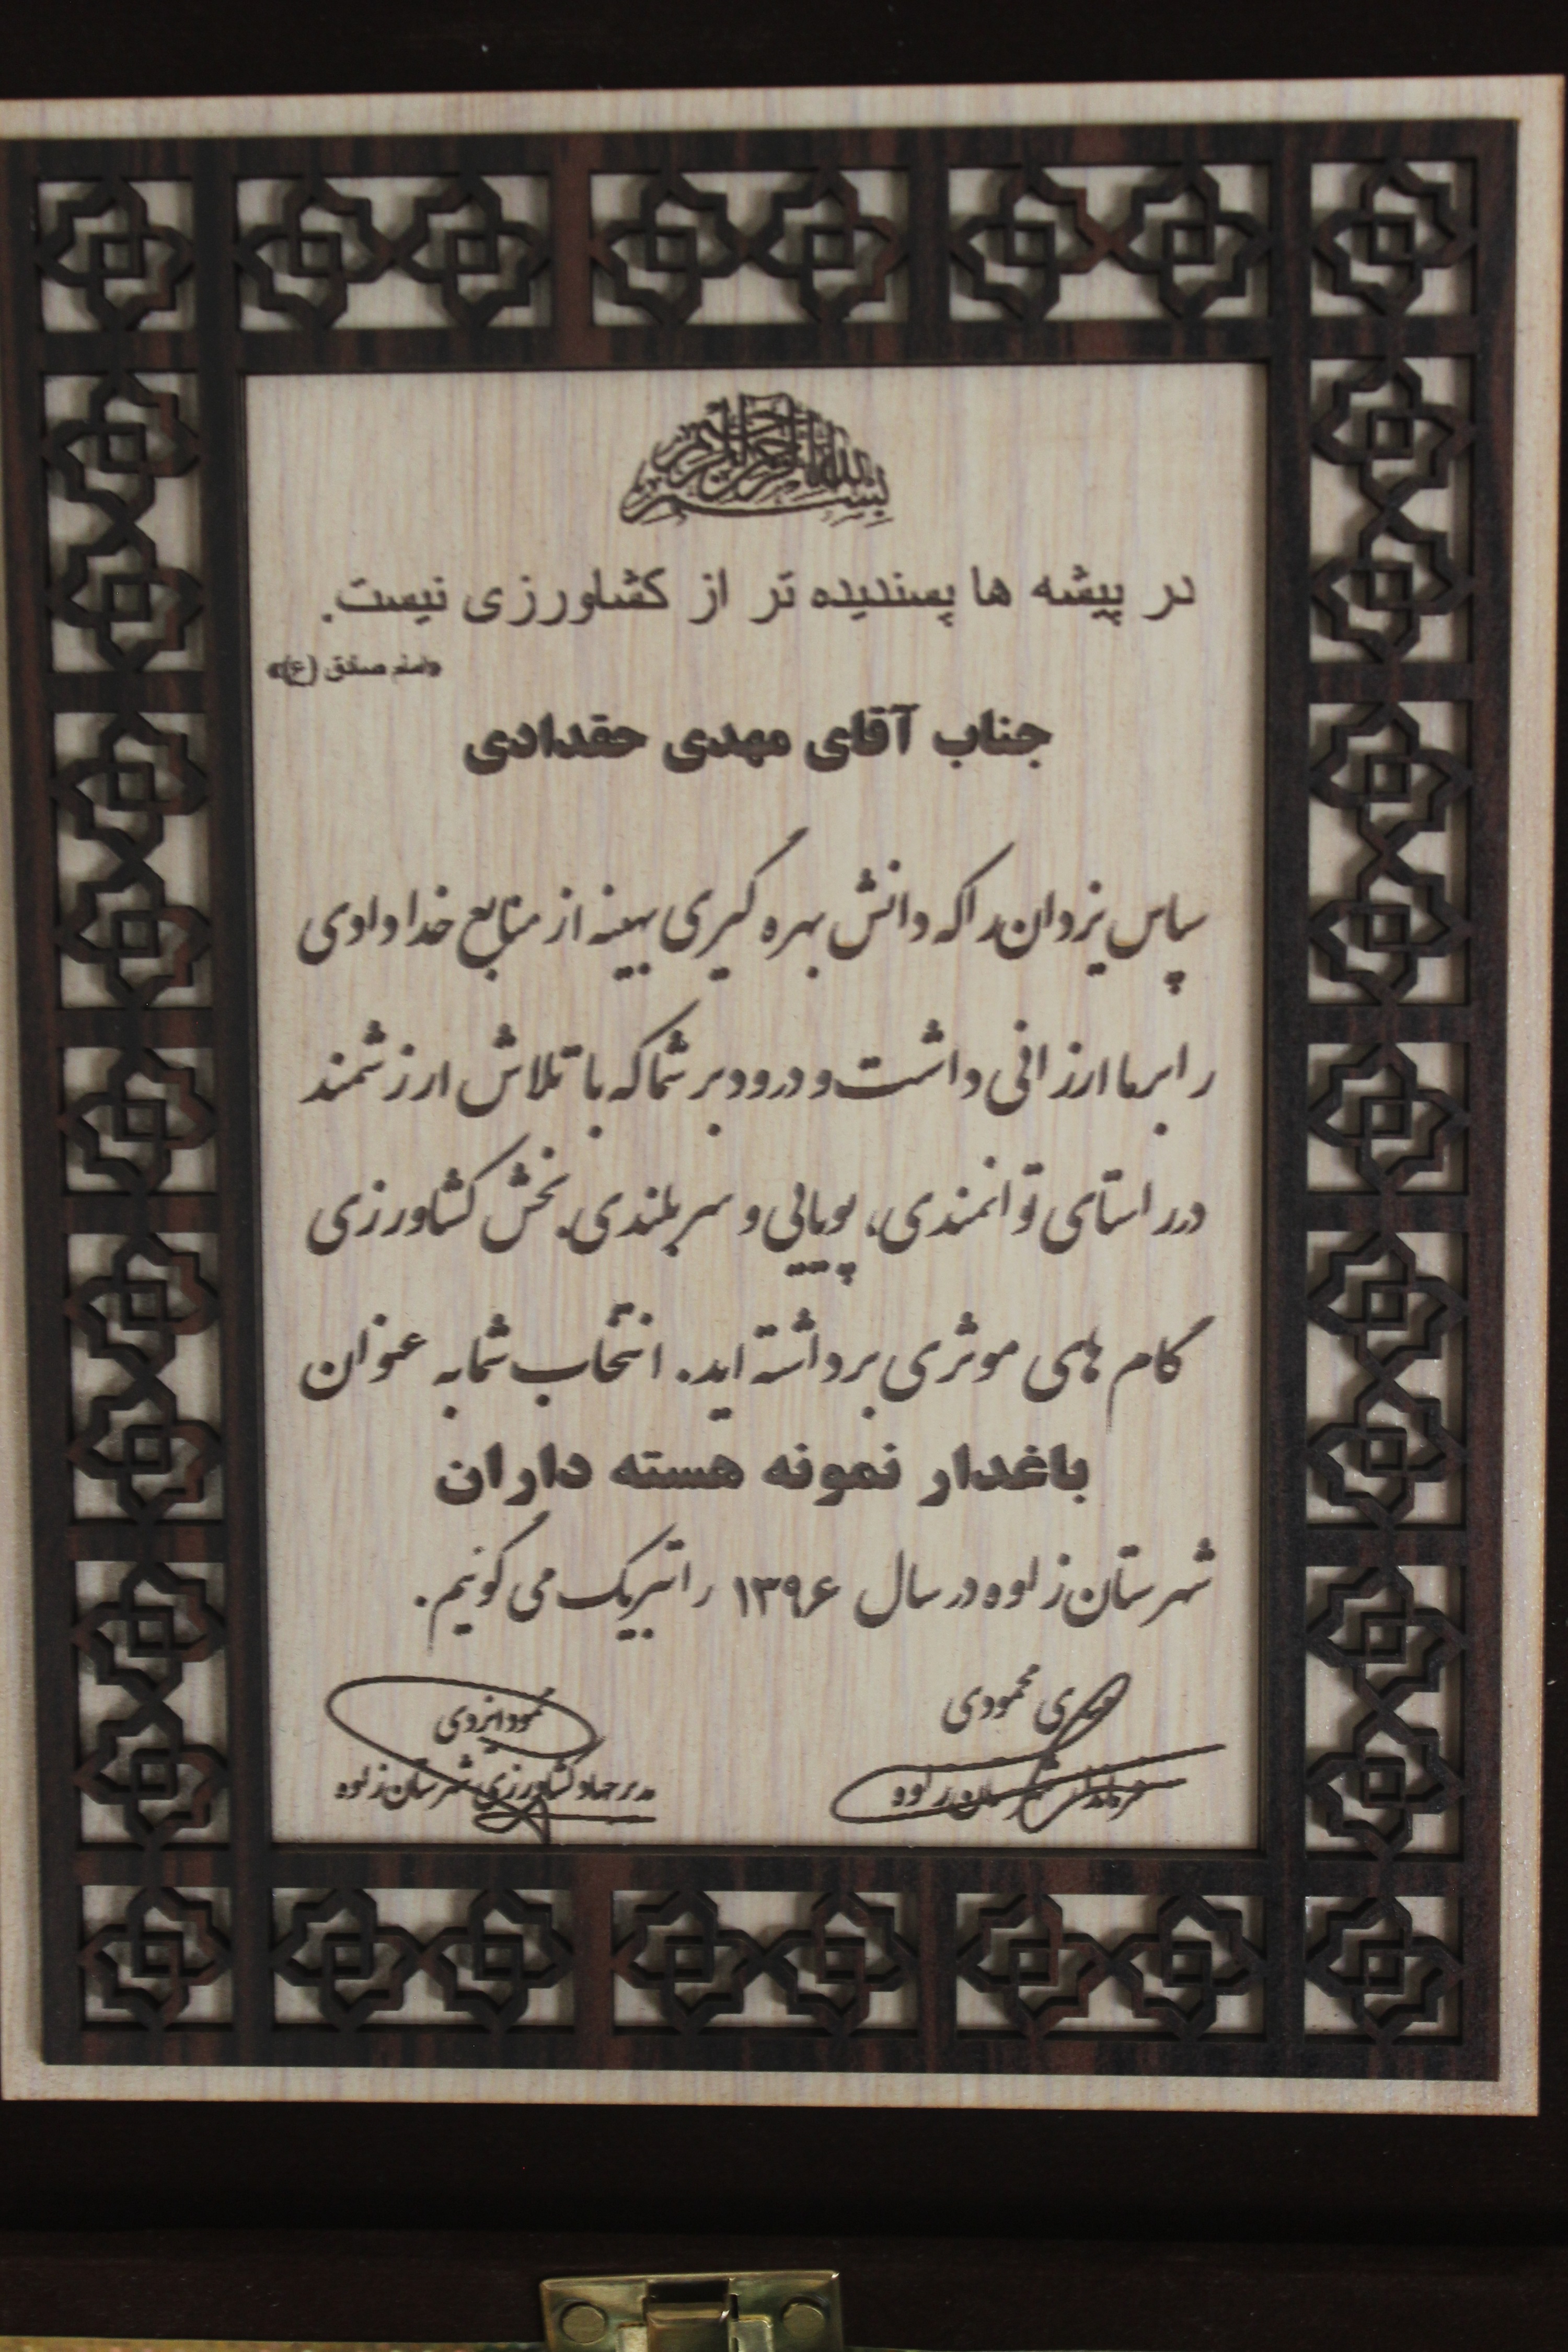 بسم الله الرحمن الرحیم
در پیشه ها پسندیده تر از کشاورزی نیست.
«امام صادق (ع)»
جناب آقای مهدی حقدادی
سپاس یزدان را که دانش بهره گیری بهینه از منابع خدادادی
را بر ما ارزانی داشت و درود بر شما که با تلاش ارزشمند
در راستای توانمندی، پویایی و سربلندی بخش کشاورزی
گام های موثری برداشته اید. انتخاب شما به عنوان
باغدار نمونه هسته داران
شهرستان زاوه در سال ۱۳۹۶ را تبریک می گوئیم.
محمودی
فرماندار شهرستان زاوه
مدیر جهاد کشاورزی شهرستان زاوه